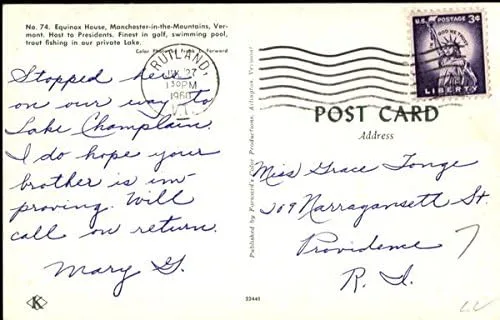 No. 74. Equinox House, Manchester-in-the-Mountains, Ver-
mont. Host to Presidents. Finest in golf, swimming pool,
trout fishing in our private Lake.
Color Photo by Frank L. Forward
Stopped here
on our way to
Lake Champlain.
I do hope your
brother is im-
proving. Will
call on return.
Mary G.
K
Published by Forward's Color Productions, Arlington, Vermont
33441
RUTLAND,
27
130PM
1960
VT.
U.S. POSTAGE 3¢
IN GOD WE TRUST
LIBERTY
POST CARD
Address
Miss Grace Tonge
209 Narragansett St.
Providence 7
R. I.